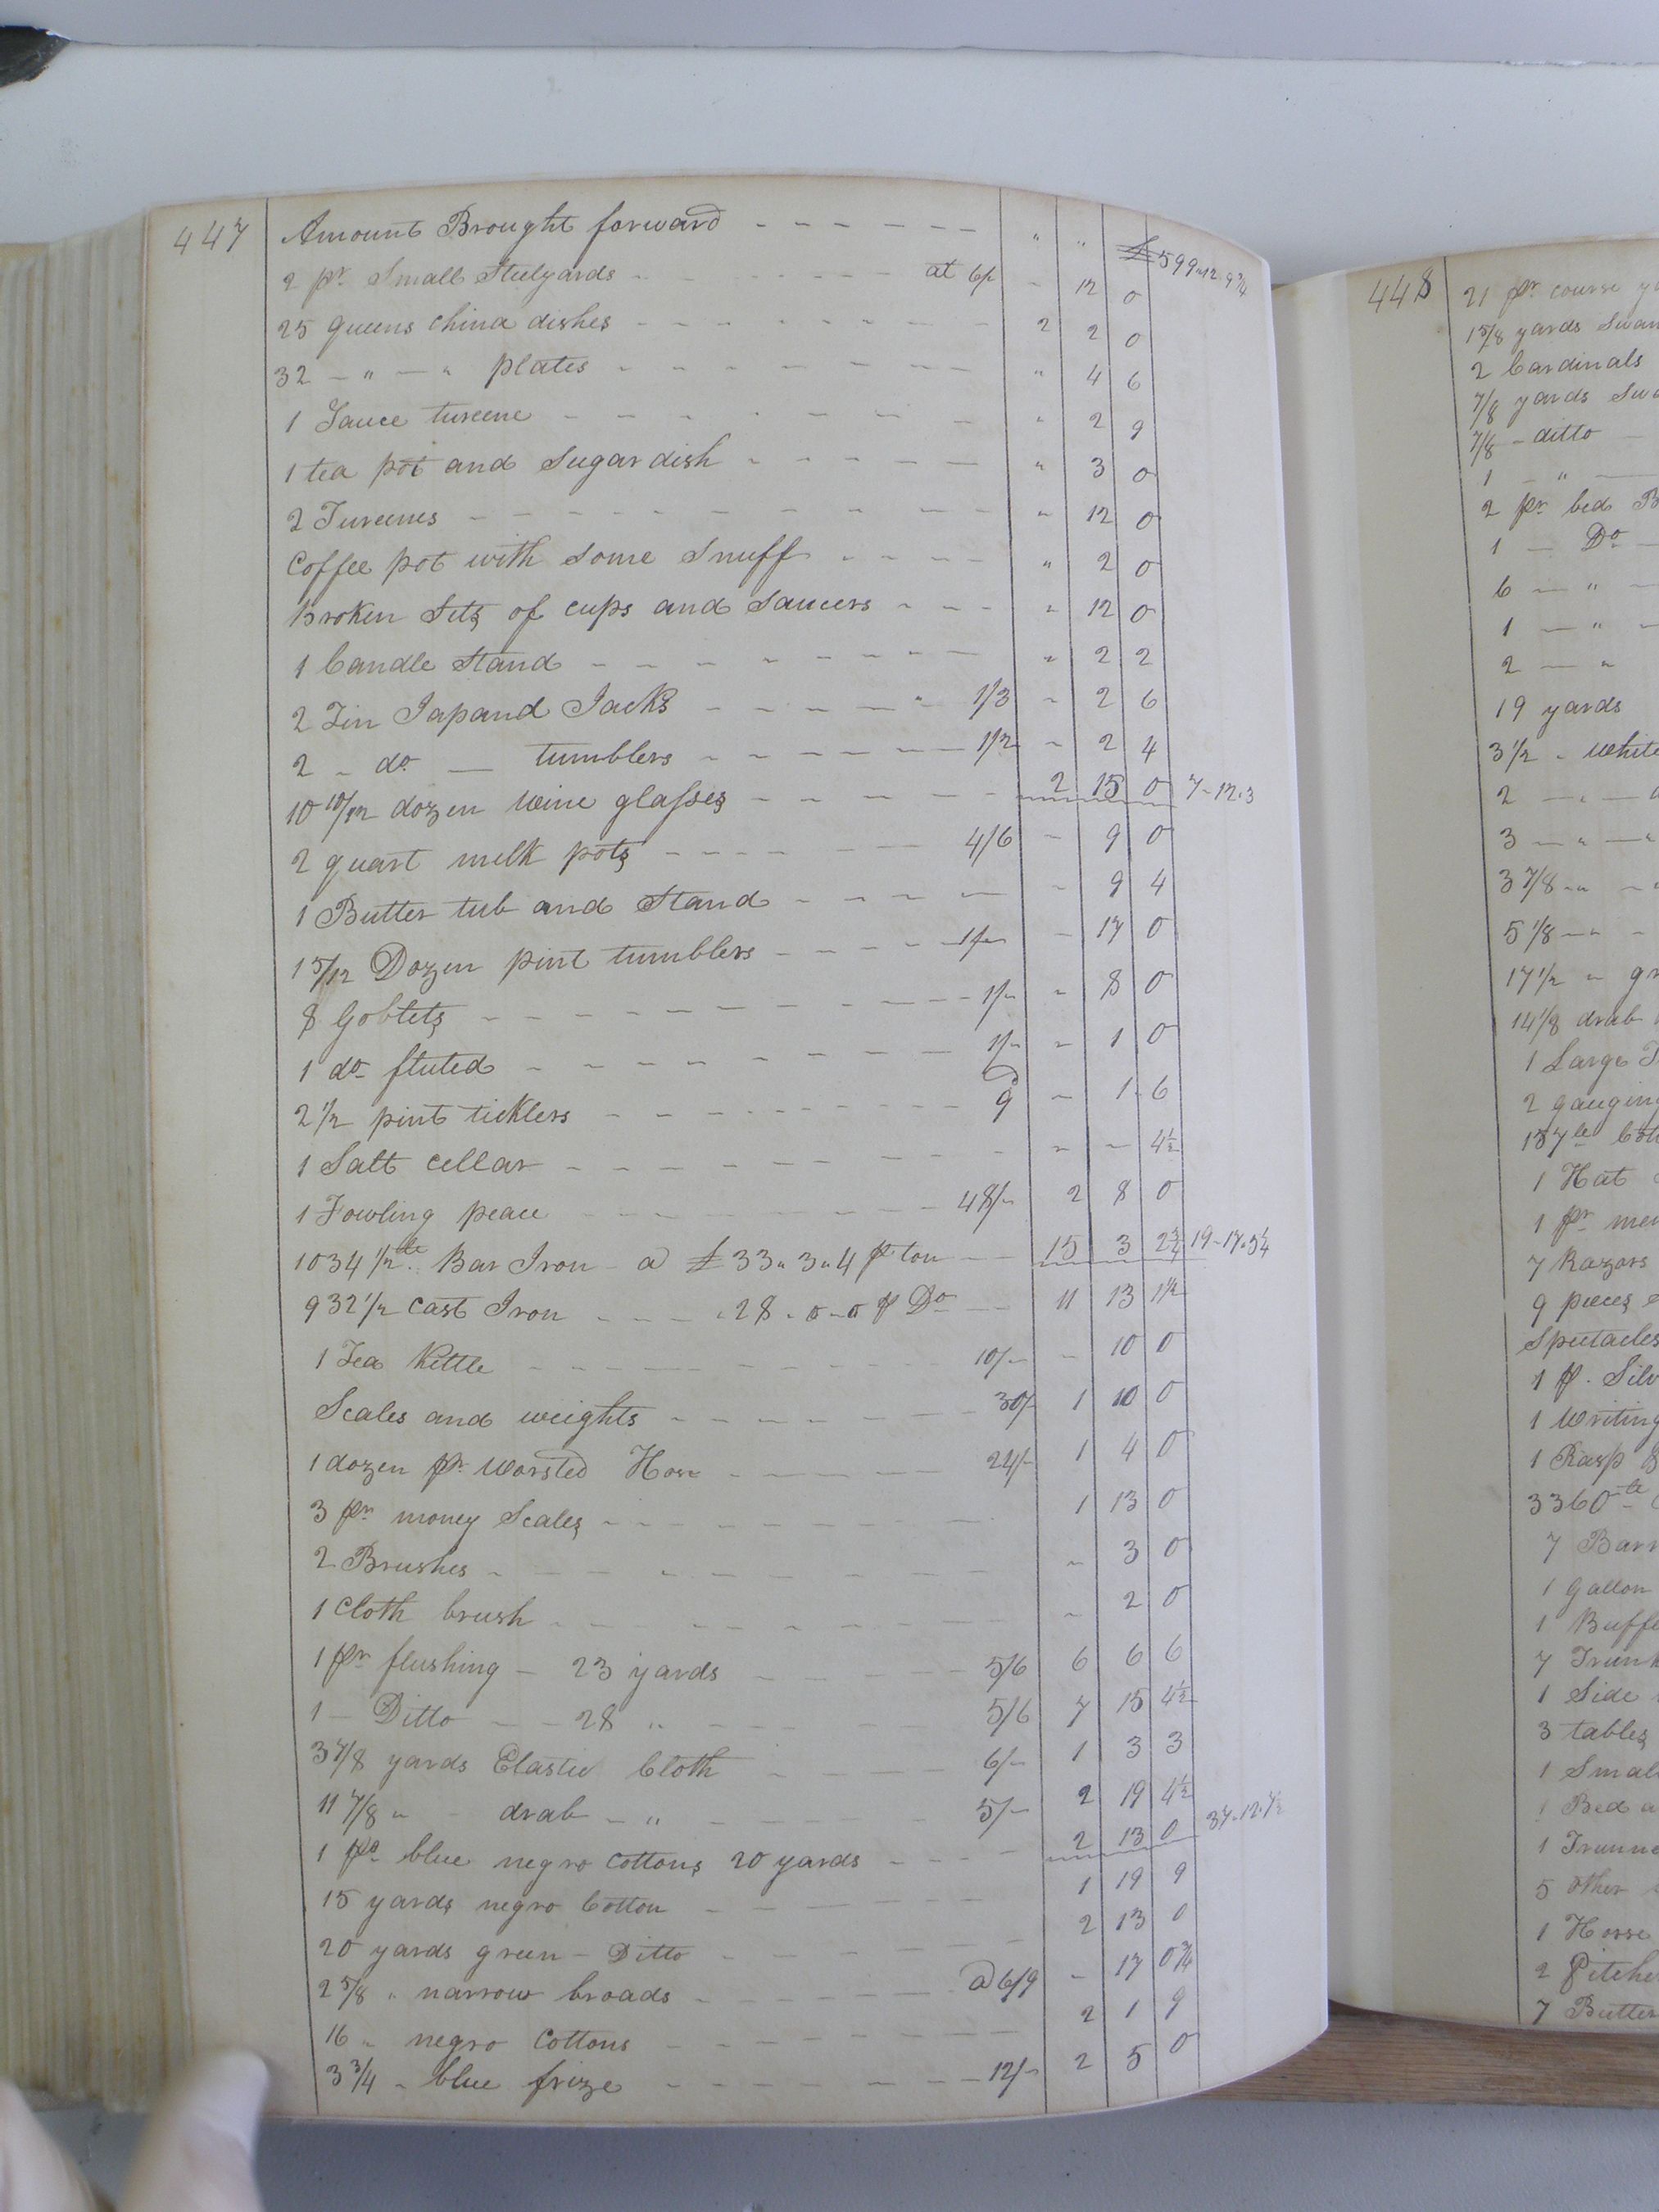 447 Amount Brought forward - - - - - - " " £599-12-9 3/4
2 pr Small Steelyards - - - - - - at 6/- - 12 0
25 queens china dishes - - - - - - - - 2 2 0
32 - " - " plates - - - - - - - - " 4 6
1 Sauce tureene - - - - - - - - " 2 9
1 tea pot and Sugar dish - - - - - " 3 0
2 Tureenes - - - - - - - - - - " 12 0
Coffee pot with some Snuff - - - - " 2 0
Broken Sets of cups and saucers - - - " 12 0
1 Candle Stand - - - - - - - - " 2 2
2 Tin Japand Jacks - - - - - " 1/3 - 2 6
2 " do - tumblers - - - - - - 1/2 - 2 4
10 10/12 dozen wine glasses - - - - - 2 15 0 7-12-3
2 quart melk pots - - - - - - 4/6 - 9 0
1 Butter tub and Stand - - - - - - 9 4
1 5/12 Dozen pint tumblers - - - - 1/- - 17 0
8 Goblets - - - - - - - - - 1/- - 8 0
1 do fluted - - - - - - - - 1/- - 1 0
2 1/2 pint ticklers - - - - - - - - 9d - 1 6
1 Salt cellar - - - - - - - - - - - 4 1/2
1 Fowling peace - - - - - - - - 48/- 2 8 0
1034 1/2 lb Bar Iron - a £33"3"4 p ton - 15 3 2 3/4 19-17-5 1/4
932 1/2 Cast Iron - - - "28-0-0 p Do - 11 13 1 1/2
1 Tea Kettle - - - - - - - - 10/- - 10 0
Scales and weights - - - - - - - 30/- 1 10 0
1 dozen pr Worsted Hose - - - - - 24/- 1 4 0
3 pr money Scales - - - - - - - - 1 13 0
2 Brushes - - - - - - - - - - 3 0
1 Cloth brush - - - - - - - - - 2 0
1 pr flushing - 23 yards - - - - 5/6 6 6 6
1 - Ditto - - 28 " - - - - 5/6 7 15 4 1/2
3 7/8 yards Elastic Cloth - - - - - 6/- 1 3 3
11 7/8 " - drab - " - - - - - 5/- 2 19 4 1/2
1 ps blue negro cottons 20 yards - - - - 2 13 0 37-12-7 1/2
15 yards negro Cotton - - - - - - - 1 19 9
20 yards green - Ditto - - - - - - 2 13 0
2 5/8 " narrow broads - - - - - - a 6/9 - 17 0 3/4
16 " negro Cottons - - - - - - - - 2 1 9
3 3/4 - blue frize - - - - - - - - 12/- 2 5 0
448 21 pr course
1 5/8 yards Swan
2 Cardinals
7/8 yards
7/8 - ditto -
1 - " -
2 pr bed
1 - Do -
6 - " -
1 - " -
2 - "
19 yards
3 1/2 - white
2 - " -
3 - " - "
3 7/8 - " -
5 1/8 - " -
17 1/2 "
14 1/8 drab
1 Large
2 gauging
137 lb
1 Hat
1 pr
7 Razors
9 pieces
Spectacles
1 p. Silv
1 Writing
1 Rasp
3360 lb
7 Barr
1 Gallon
1 Buff
7 Trunk
1 Side
3 tables
1 Small
1 Bed a
1 Trunn
5 other
1 Horse
2 Pitche
7 Butter